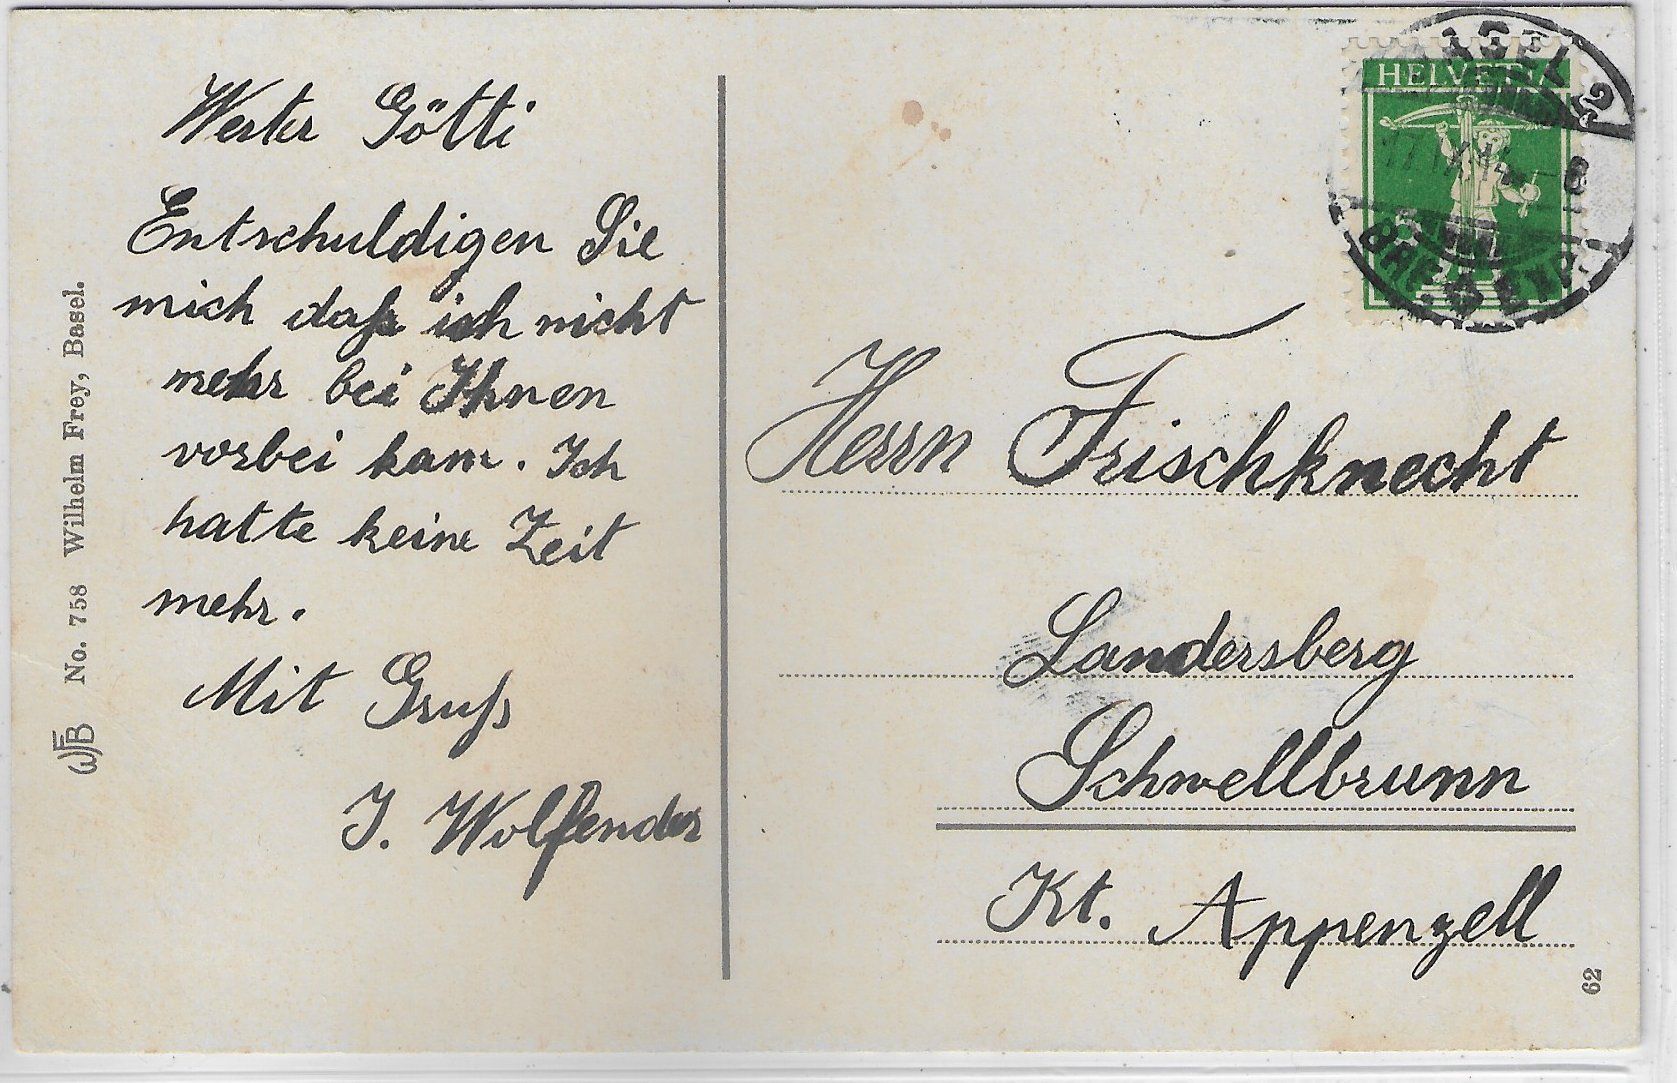 Werter Götti
Entschuldigen Sie
mich daß ich nicht
mehr bei Ihnen
vorbei kam. Ich
hatte keine Zeit
mehr.
Mit Gruß
J. Wolfender
WFB No. 758 Wilhelm Frey, Basel.
HELVETIA
BASEL 2
BRIEFEXP.
Herrn Frischknecht
Landersberg
Schwellbrunn
Kt. Appenzell
62